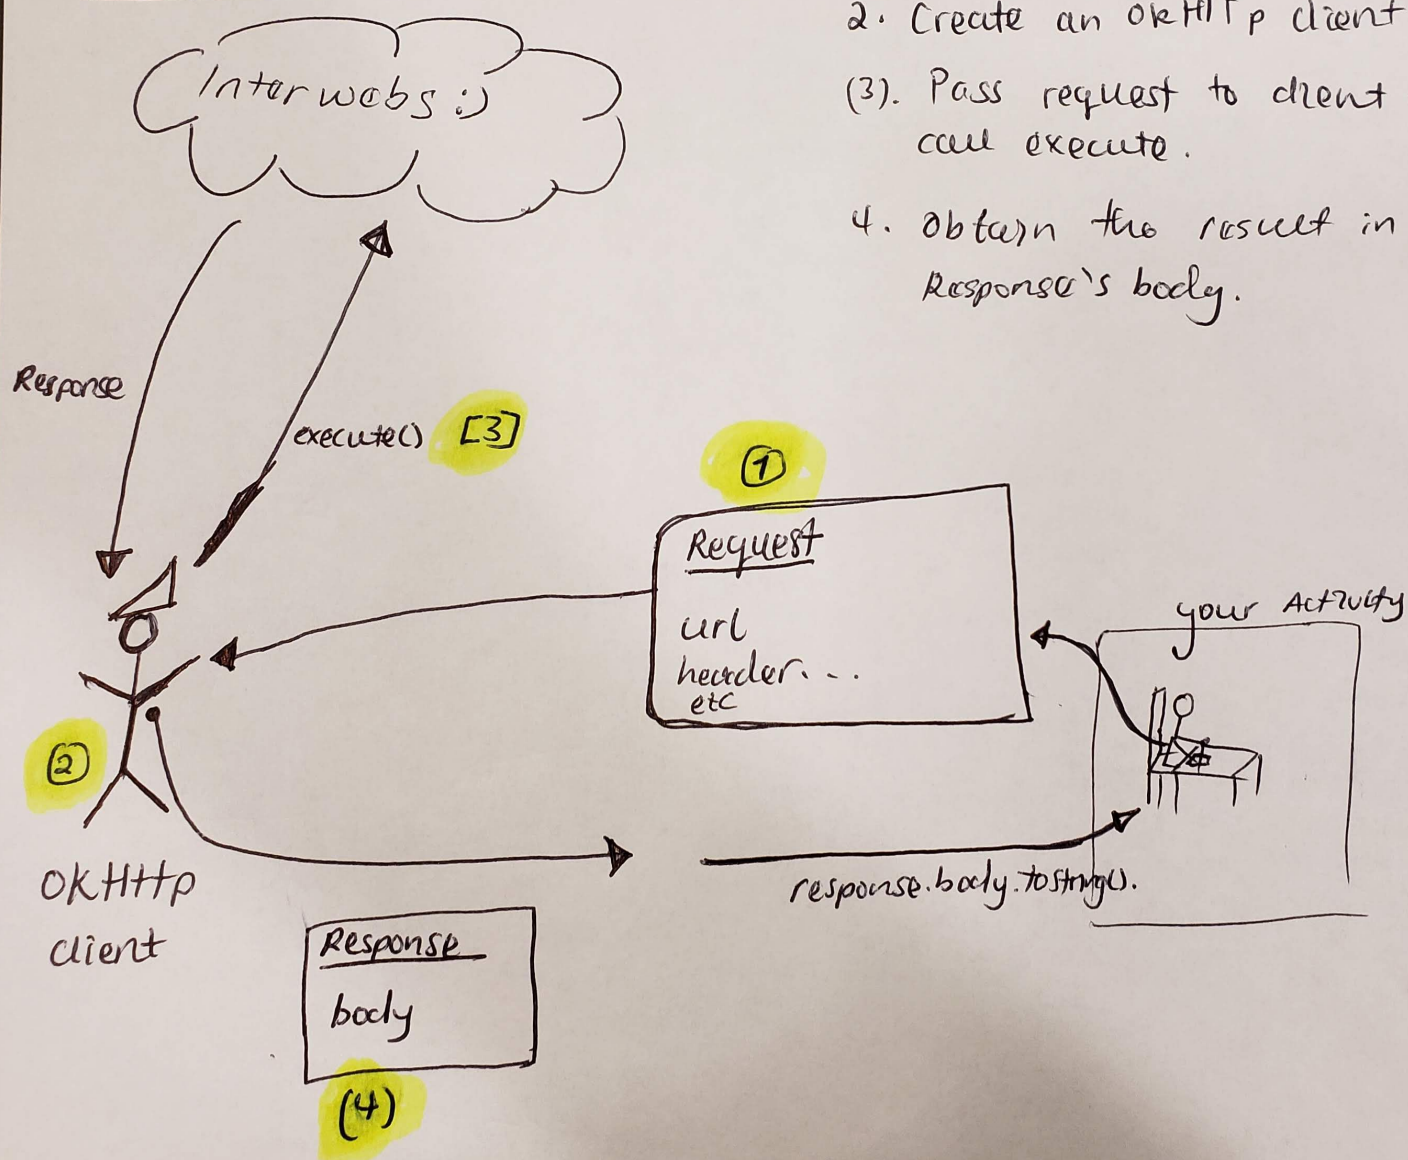 2. Create an OkHTTp client
(3). Pass request to client
call execute.
4. Obtain the result in
Response's body.
Interwebs :)
Response
execute() [3]
1
Request
url
header...
etc
your Activity
2
OKHttp
client
response.body.toString().
Response
body
(4)